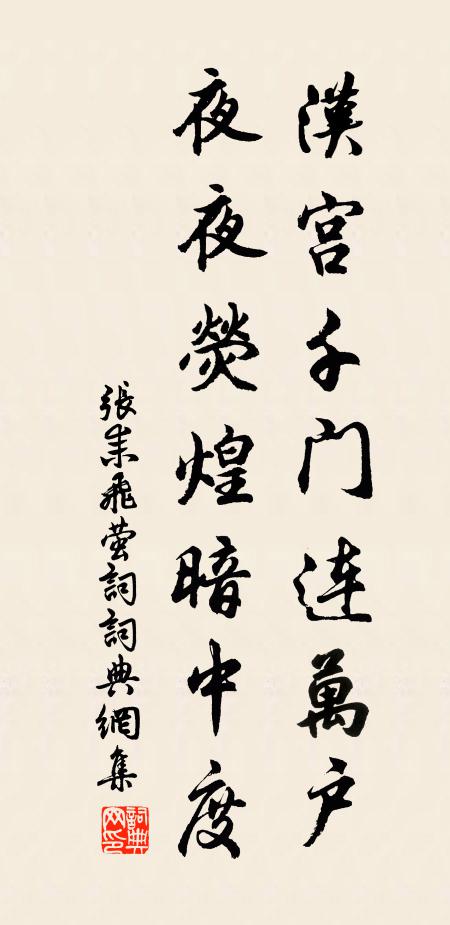 漢宮千門連萬户
夜夜熒煌暗中度
張耒飛萤詞詞典網集
詞典網印